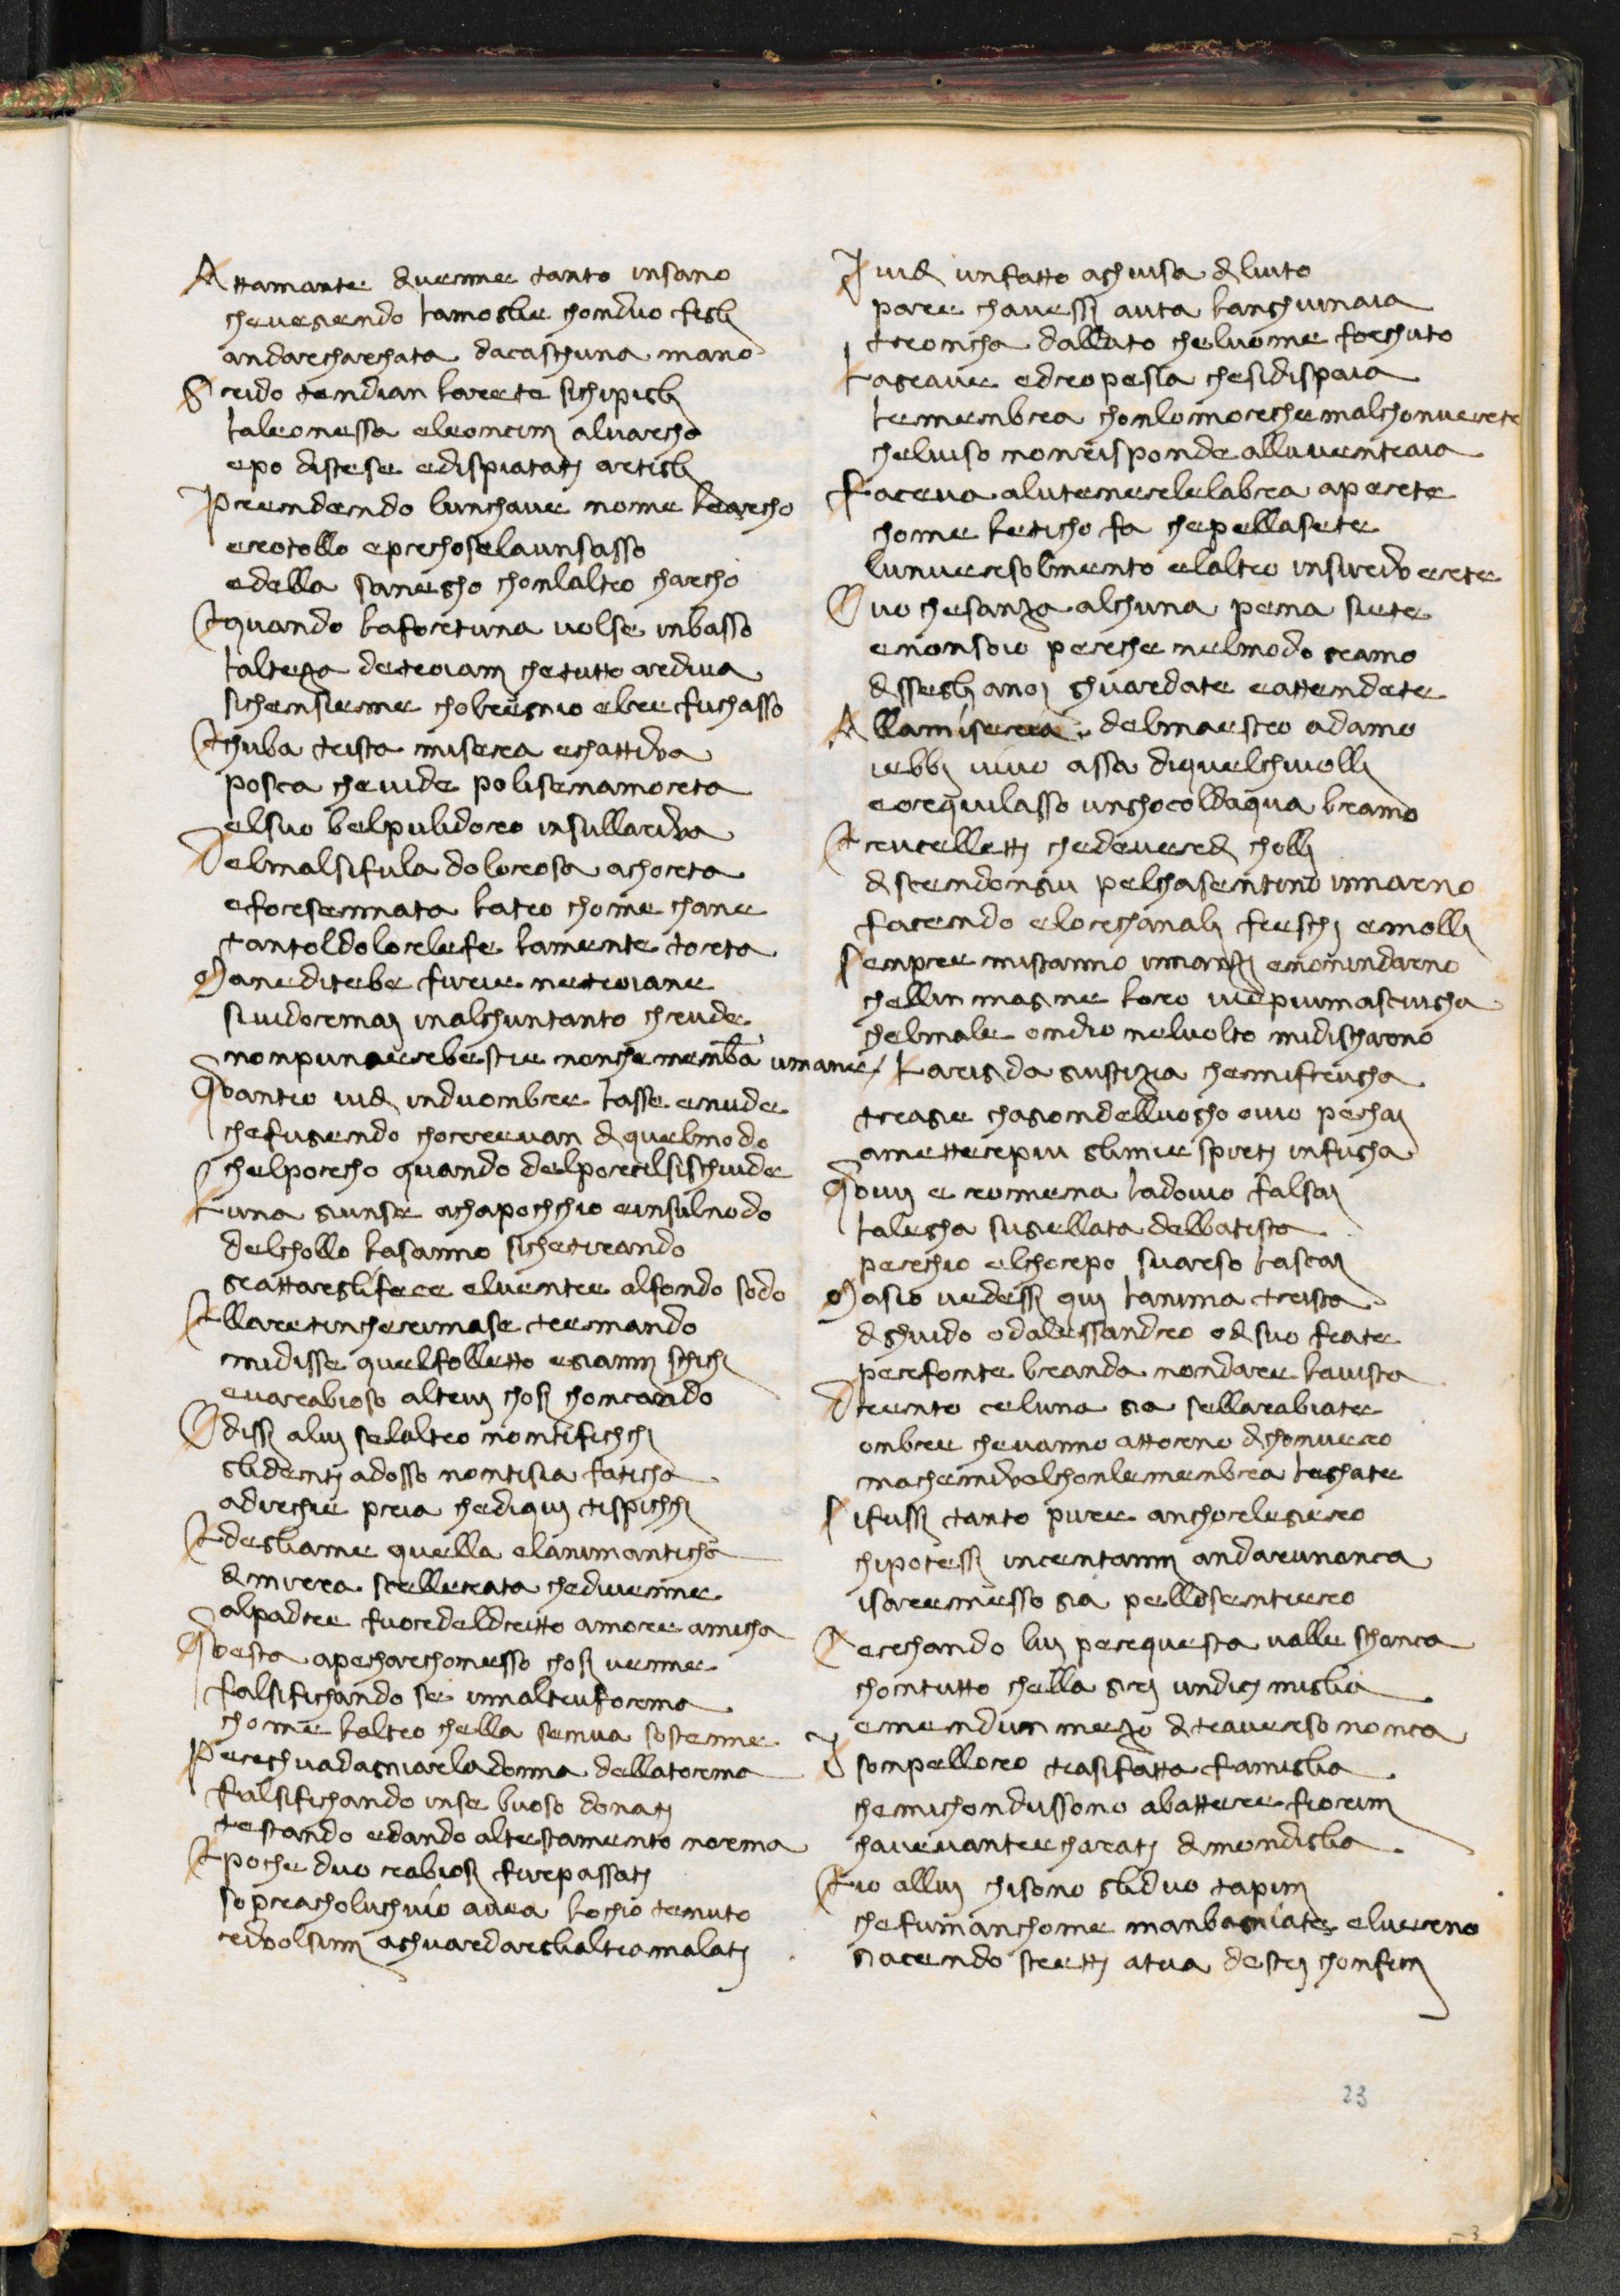 Attamante diuenne tanto insano
cheuegiendo lamoglie chonduo figli
andarcharchata daciaschuna mano
Grido tendian larete sichipigli
laleonessa eleoncini aluarcho
epo distese edispiatati artigli
Prendendo lunchaue nome learcho
erotollo eperchoselaunsasso
edella sanegho chonlaltro charcho
Equando lafortuna uolse inbasso
lalteza detroiani chetutto ardiua
sichensieme cholregnio elre fuchasso
Echuba trista misera echattiua
poscia cheuide polisenamorta
elsuo belpulidoro insullariua
Delmalsifula dolorosa achorta
eforsennata latro chome chane
tantoldolorlefe lamente torta
Maneditebe furie netroiane
siuidormai inalchuntanto chrude
nonpungierebestie nonche menbra umane
Quantio uidi induombre lasse enude
chefugiendo chorreuan diquelmodo
chelporcho quando delporcilsischiude
Luna giunse achapochchio einsulnodo
delchollo lasanno sichetirando
grattareglifece eluentre alfondo sodo
Ellaretincherimase tremando
midisse quelfolletto egianni schichi
euarabioso altrui chosi chonciando
Odissi alui selaltro nontifichchi
glidenti adosso nontisia faticha
adirchie pria chediqui tispichchi
Edegliame quella elanimanticha
dimirra scellerata chediuenne
alpadre fuordeldritto amore amicha
Questa apecharchonesso chosi uenne
falsifichando se innaltruiforma
chome laltro chella senua sostenne
Perghuadagniarladonna dellatorma
falsifichando inse buoso donati
testando edando altestamento norma
Epoche duo rabiosi furpassati
sopracholuchuio auea lochio tenuto
riuolsimi aghuardareglialtrimalati
Iuidi unfatto aghuisa diliuto
pure chauessi auta languinaia
troncha dallato cheluome forchuto
Lagraue edropesia chesidispaia
lemembra chonlomorechemalchonuerte
cheluiso nonrisponde allauentraia
Faceua aluitenerlelabra aperte
chome leticho fa chepellasete
lunuersolmento elaltro insuriuerte
Ouo chesanza alchuna pena siete
enonsoio perche nelmodo gramo
dissegli anoi ghuardate eattendete
Allamiseria delmaestro adamo
iebbi uiuo assa diquelchiuolli
eorquilasso unghocioldaqua bramo
Eruscelletti chedeuerdi cholli
discendongiu pelchasentino innarno
faciendo elorchanali freschi emolli
Senpre mistanno innanzi enonindarno
chellinmagine loro uiepiumasciugha
chelmale ondio neluolto midischarno
Larigida giustizia chemifrugha
tragie chagiondelluogho ouio pechai
amettterpiu glimie spirti infugha
Quiui e romena ladouio falsai
lalegha sugiellata delbatista
perchio elchorpo suarso lasciai
Masio uedessi qui lanima trista
dighuido odalessandro odi suo frate
perfonte branda nondare lauista
Dreentro celuna gia sellarabiate
ombre cheuanno attorno dichonuero
machemiualchonlemenbra leghate
Sifussi tanto pure anchorlegiero
chipotessi incentanni andareunoncia
isaremesso gia pellosentiero
Cerchando lui perquesta ualle schoncia
chontutto chella giri undici miglia
emendiun mezo ditrauerso nonca
Isonpelloro trasifatta famiglia
chemichondussono abattere fiorini
chaueuantrecharati dimondiglia
Eio allui chisono gliduo tapini
chefumanchome manbagniate eluerno
giacendo stretti atua destri chonfini
23